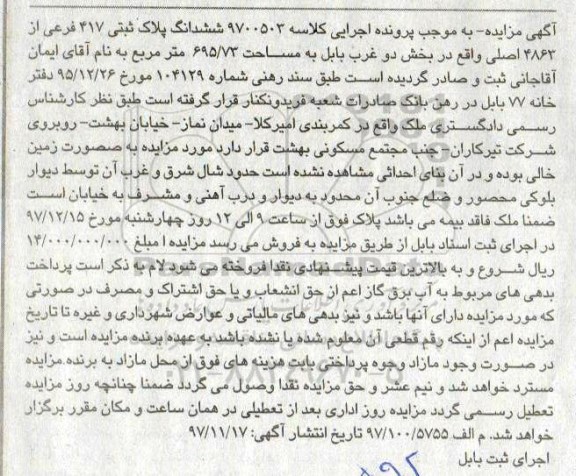 آگهی مزایده- به موجب پرونده اجرایی کلاسه ۹۷۰۰۵۰۳ ششدانگ پلاک ثبتی ۴۱۷ فرعی از
۴۸۶۳ اصلی واقع در بخش دو غرب بابل به مساحت ۶۹۵/۷۳ متر مربع به نام آقای ایمان
آقاجانی ثبت و صادر گردیده است طبق سند رهنی شماره ۱۰۴۱۲۹ مورخ ۹۵/۱۲/۲۶ دفتر
خانه ۷۷ بابل در رهن بانک صادرات شعبه فریدونکنار قرار گرفته است طبق نظر کارشناس
رسمی دادگستری ملک واقع در کمربندی امیرکلا- میدان نماز- خیابان بهشت- روبروی
شرکت تیرکاران- جنب مجتمع مسکونی بهشت قرار دارد مورد مزایده به صصورت زمین
خالی بوده و در آن بنای احداثی مشاهده نشده است حدود شال شرق و غرب آن توسط دیوار
بلوکی محصور و ضلع جنوب آن محدود به دیوار و درب آهنی و مشرف به خیابان است
ضمنا ملک فاقد بیمه می باشد پلاک فوق از ساعت ۹ الی ۱۲ روز چهارشنبه مورخ ۹۷/۱۲/۱۵
در اجرای ثبت اسناد بابل از طریق مزایده به فروش می رسد مزایده ا مبلغ ۱۴/۰۰۰/۰۰۰/۰۰۰
ریال شروع و به بالاترین قیمت پیشنهادی نقدا فروخته می شود لام به ذکر است پرداخت
بدهی های مربوط به آب برق گاز اعم از حق انشعاب و یا حق اشتراک و مصرف در صورتی
که مورد مزایده دارای آنها باشد و نیز بدهی های مالیاتی و عوارض شهرداری و غیره تا تاریخ
مزایده اعم از اینکه رقم قطعی آن معلوم شده یا نشده باشد به عهده برنده مزایده است و نیز
در صورت وجود مازاد وجوه پرداختی بابت هزینه های فوق از محل مازاد به برنده مزایده
مسترد خواهد شد و نیم عشر و حق مزایده نقدا وصول می گردد ضمنا چنانچه روز مزایده
تعطیل رسمی گردد مزایده روز اداری بعد از تعطیلی در همان ساعت و مکان مقرر برگزار
خواهد شد. م الف ۹۷/۱۰۰/۵۷۵۵ تاریخ انتشار آگهی: ۹۷/۱۱/۱۷
اجرای ثبت بابل